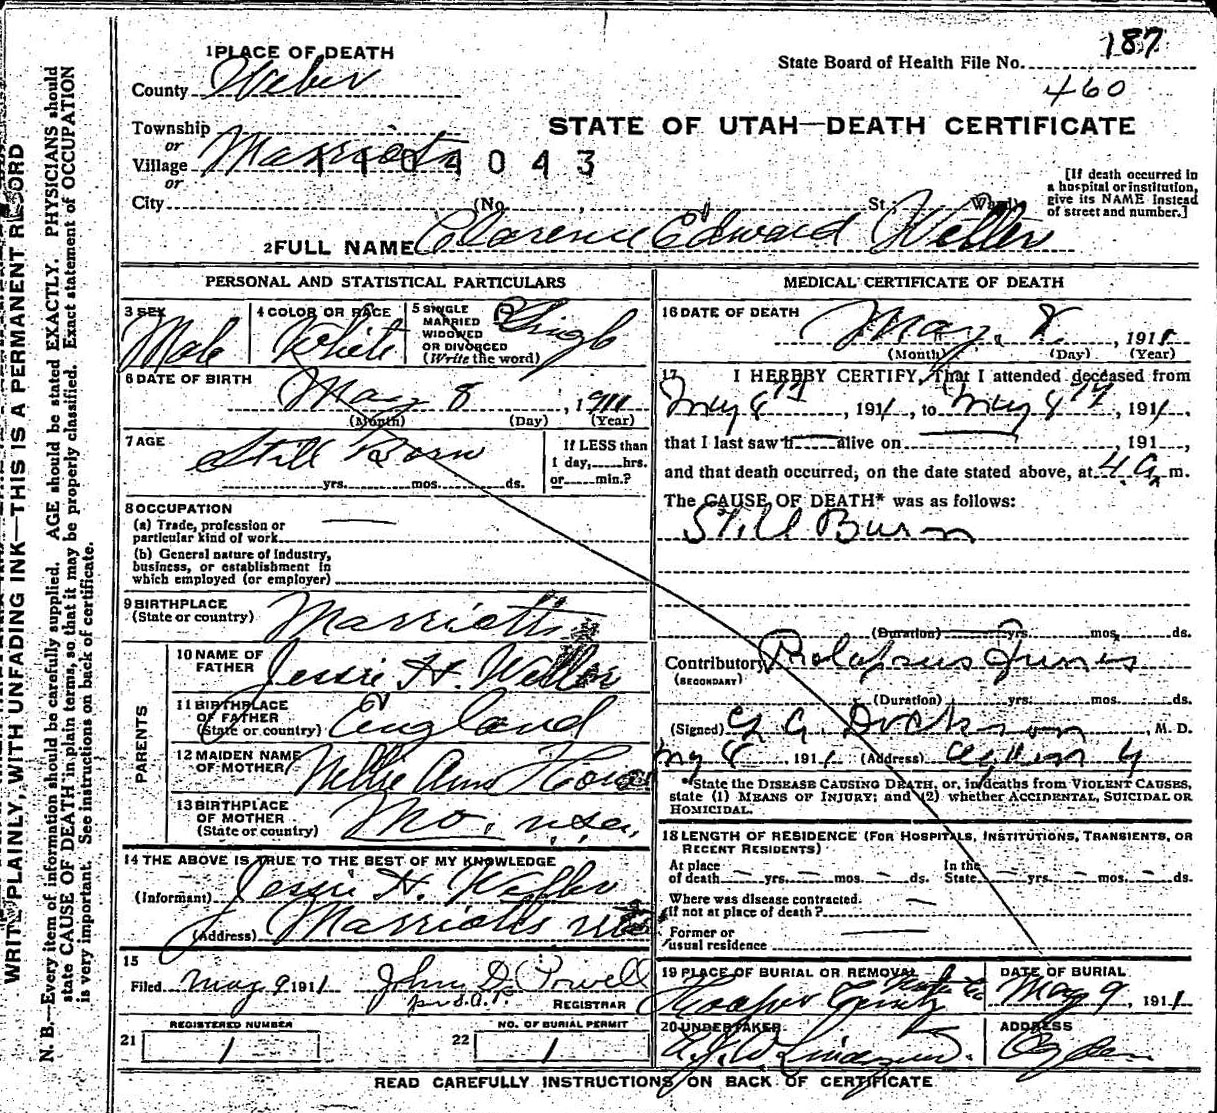 WRITE PLAINLY, WITH UNFADING INK—THIS IS A PERMANENT RECORD
N. B.—Every item of information should be carefully supplied. AGE should be stated EXACTLY. PHYSICIANS should
state CAUSE OF DEATH in plain terms, so that it may be properly classified. Exact statement of OCCUPATION
is very important. See instructions on back of certificate.
187
State Board of Health File No.
460
1 PLACE OF DEATH
County Weber
STATE OF UTAH—DEATH CERTIFICATE
Township
or
Village Marriotts
1104043
or
City (No. , St. Ward)
[If death occurred in
a hospital or institution,
give its NAME instead
of street and number.]
2 FULL NAME Clarence Edward Weller
PERSONAL AND STATISTICAL PARTICULARS
3 SEX
Male
4 COLOR OR RACE
White
5 SINGLE
MARRIED
WIDOWED
OR DIVORCED
(Write the word)
Single
6 DATE OF BIRTH
May 8, 1911
(Month) (Day) (Year)
7 AGE
Still Born
yrs. mos. ds.
If LESS than
1 day, hrs.
or min.?
8 OCCUPATION
(a) Trade, profession or
particular kind of work
(b) General nature of industry,
business, or establishment in
which employed (or employer)
9 BIRTHPLACE
(State or country)
Marriotts
PARENTS
10 NAME OF
FATHER
Jessie H. Weller
11 BIRTHPLACE
OF FATHER
(State or country)
England
12 MAIDEN NAME
OF MOTHER
Nellie Ann
13 BIRTHPLACE
OF MOTHER
(State or country)
Mo. U.S.A.
14 THE ABOVE IS TRUE TO THE BEST OF MY KNOWLEDGE
(Informant) Jessie H. Weller
(Address) Marriotts
15
Filed May 9 1911 John D. Powell
REGISTRAR
REGISTERED NUMBER
21 1
NO. OF BURIAL PERMIT
22 1
MEDICAL CERTIFICATE OF DEATH
16 DATE OF DEATH
May 8, 1911
(Month) (Day) (Year)
17 I HEREBY CERTIFY, That I attended deceased from
May 8th, 1911, to May 8th, 1911,
that I last saw h alive on , 191 ,
and that death occurred, on the date stated above, at 4 A m.
The CAUSE OF DEATH* was as follows:
Still Burn
(Duration) yrs. mos. ds.
Contributory Prolapsus Funis
(SECONDARY)
(Duration) yrs. mos. ds.
(Signed) Dickson, M. D.
My 8, 1911 (Address)
*State the DISEASE CAUSING DEATH, or, in deaths from VIOLENT CAUSES,
state (1) MEANS OF INJURY; and (2) whether ACCIDENTAL, SUICIDAL OR
HOMICIDAL.
18 LENGTH OF RESIDENCE (FOR HOSPITALS, INSTITUTIONS, TRANSIENTS, OR
RECENT RESIDENTS)
At place
of death yrs. mos. ds.
In the
State yrs. mos. ds.
Where was disease contracted.
If not at place of death?
Former or
usual residence
19 PLACE OF BURIAL OR REMOVAL
Hooper
DATE OF BURIAL
May 9, 1911
20 UNDERTAKER
ADDRESS
Ogden
READ CAREFULLY INSTRUCTIONS ON BACK OF CERTIFICATE